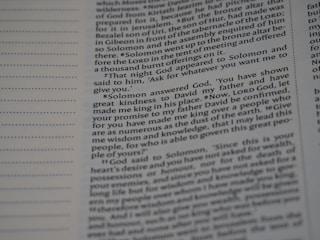 which Moses
of God from Kiriath
prepared for it, because he had pitched
for it in Jerusalem. But the bronze altar that
Bezalel son of Uri, the son of Hur, had made
in Gibeon in front of the tabernacle of the
so Solomon and the assembly enquired of him
there. Solomon went up to the bronze altar be-
fore the LORD in the Tent of Meeting and offered
a thousand burnt offerings on it.
7That night God appeared to Solomon and
said to him, 'Ask for whatever you want me to
give you.'
8Solomon answered God, 'You have shown
great kindness to David my father and have
made me king in his place. 9Now, LORD God, let
your promise to my father David be confirmed,
for you have made me king over a people who
are as numerous as the dust of the earth. 10Give
me wisdom and knowledge, that I may lead this
people, for who is able to govern this great peo-
ple of yours?'
11God said to Solomon, 'Since this is your
heart's desire and you have not asked for wealth,
possessions or honour, nor for the death of
your enemies, and since you have not asked for a
long life but for wisdom and knowledge to gov-
ern my people over whom I have made you king,
12therefore wisdom and knowledge will be given
you. And I will also give you wealth, possessions
and honour, such as no king who was before you
ever had and none after you will have.'